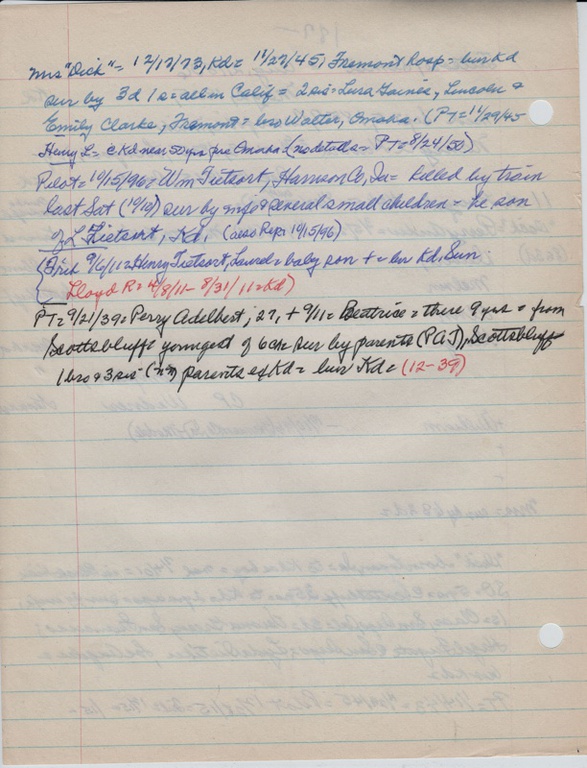 Mrs "Dick" = 12/17/73, Kd = 11/27/45, Fremont Hosp = bur Kd
sur by 3d 1s = all in Calif = 2 sis = Lura Gaines, Lincoln &
Emily Clarke, Fremont = bro Walter, Omaha. (PT = 11/29/45
Henry L = c Kd near 50 yrs fu Omaha (no details = PT = 8/24/50)
Pilot = 10/15/96 = Wm Tietsort, Harrison Co, Ia = killed by train
last Sat (10/10) sur by wife & several small children = he son
of L Tietsort, Kd. (also Rep: 10/15/96)
Frid 9/6/11 = Henry Tietsort, Laurel = baby son + = bur Kd, Sun
Lloyd R = 4/8/11 - 8/31/11 = Kd)
PT = 9/21/39 = Perry Adelbert, 27, + 9/11 = Beatrice = there 9 yrs = from
Scottsbluff = youngest of 6 ch = sur by parents (PAT), Scottsbluff
1 bro & 3 sis (nn) parents of Kd = bur Kd = (12-39)